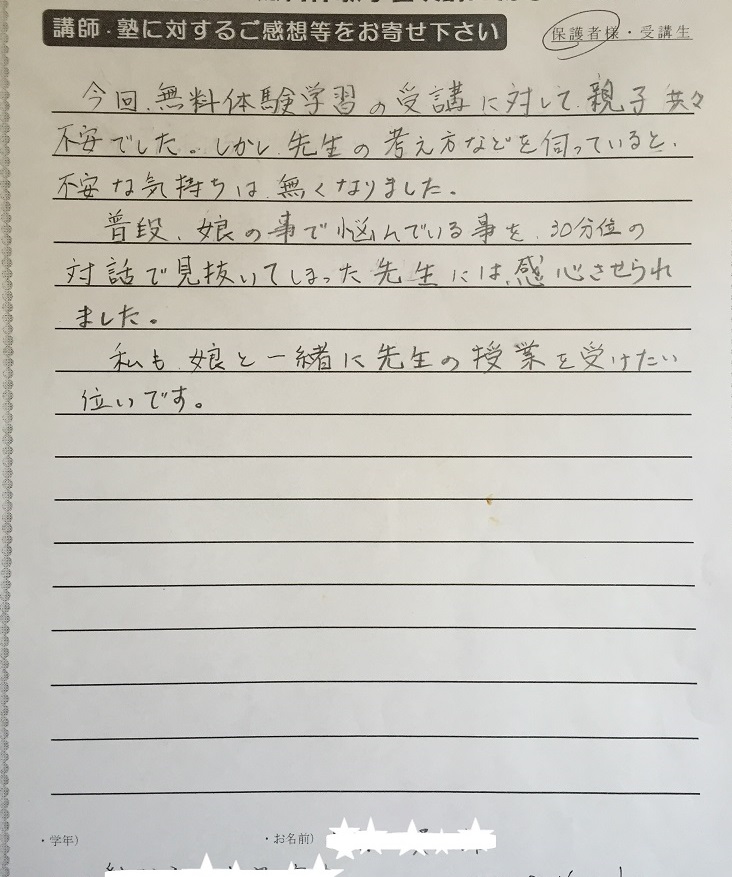 講師・塾に対するご感想等をお寄せ下さい
保護者様・受講生
今回、無料体験学習の受講に対して、親子共々
不安でした。しかし、先生の考え方などを伺っていると、
不安な気持ちは、無くなりました。
普段、娘の事で悩んでいる事を、30分位の
対話で見抜いてしまった先生には、感心させられ
ました。
私も、娘と一緒に先生の授業を受けたい
位いです。
・学年)
・お名前)